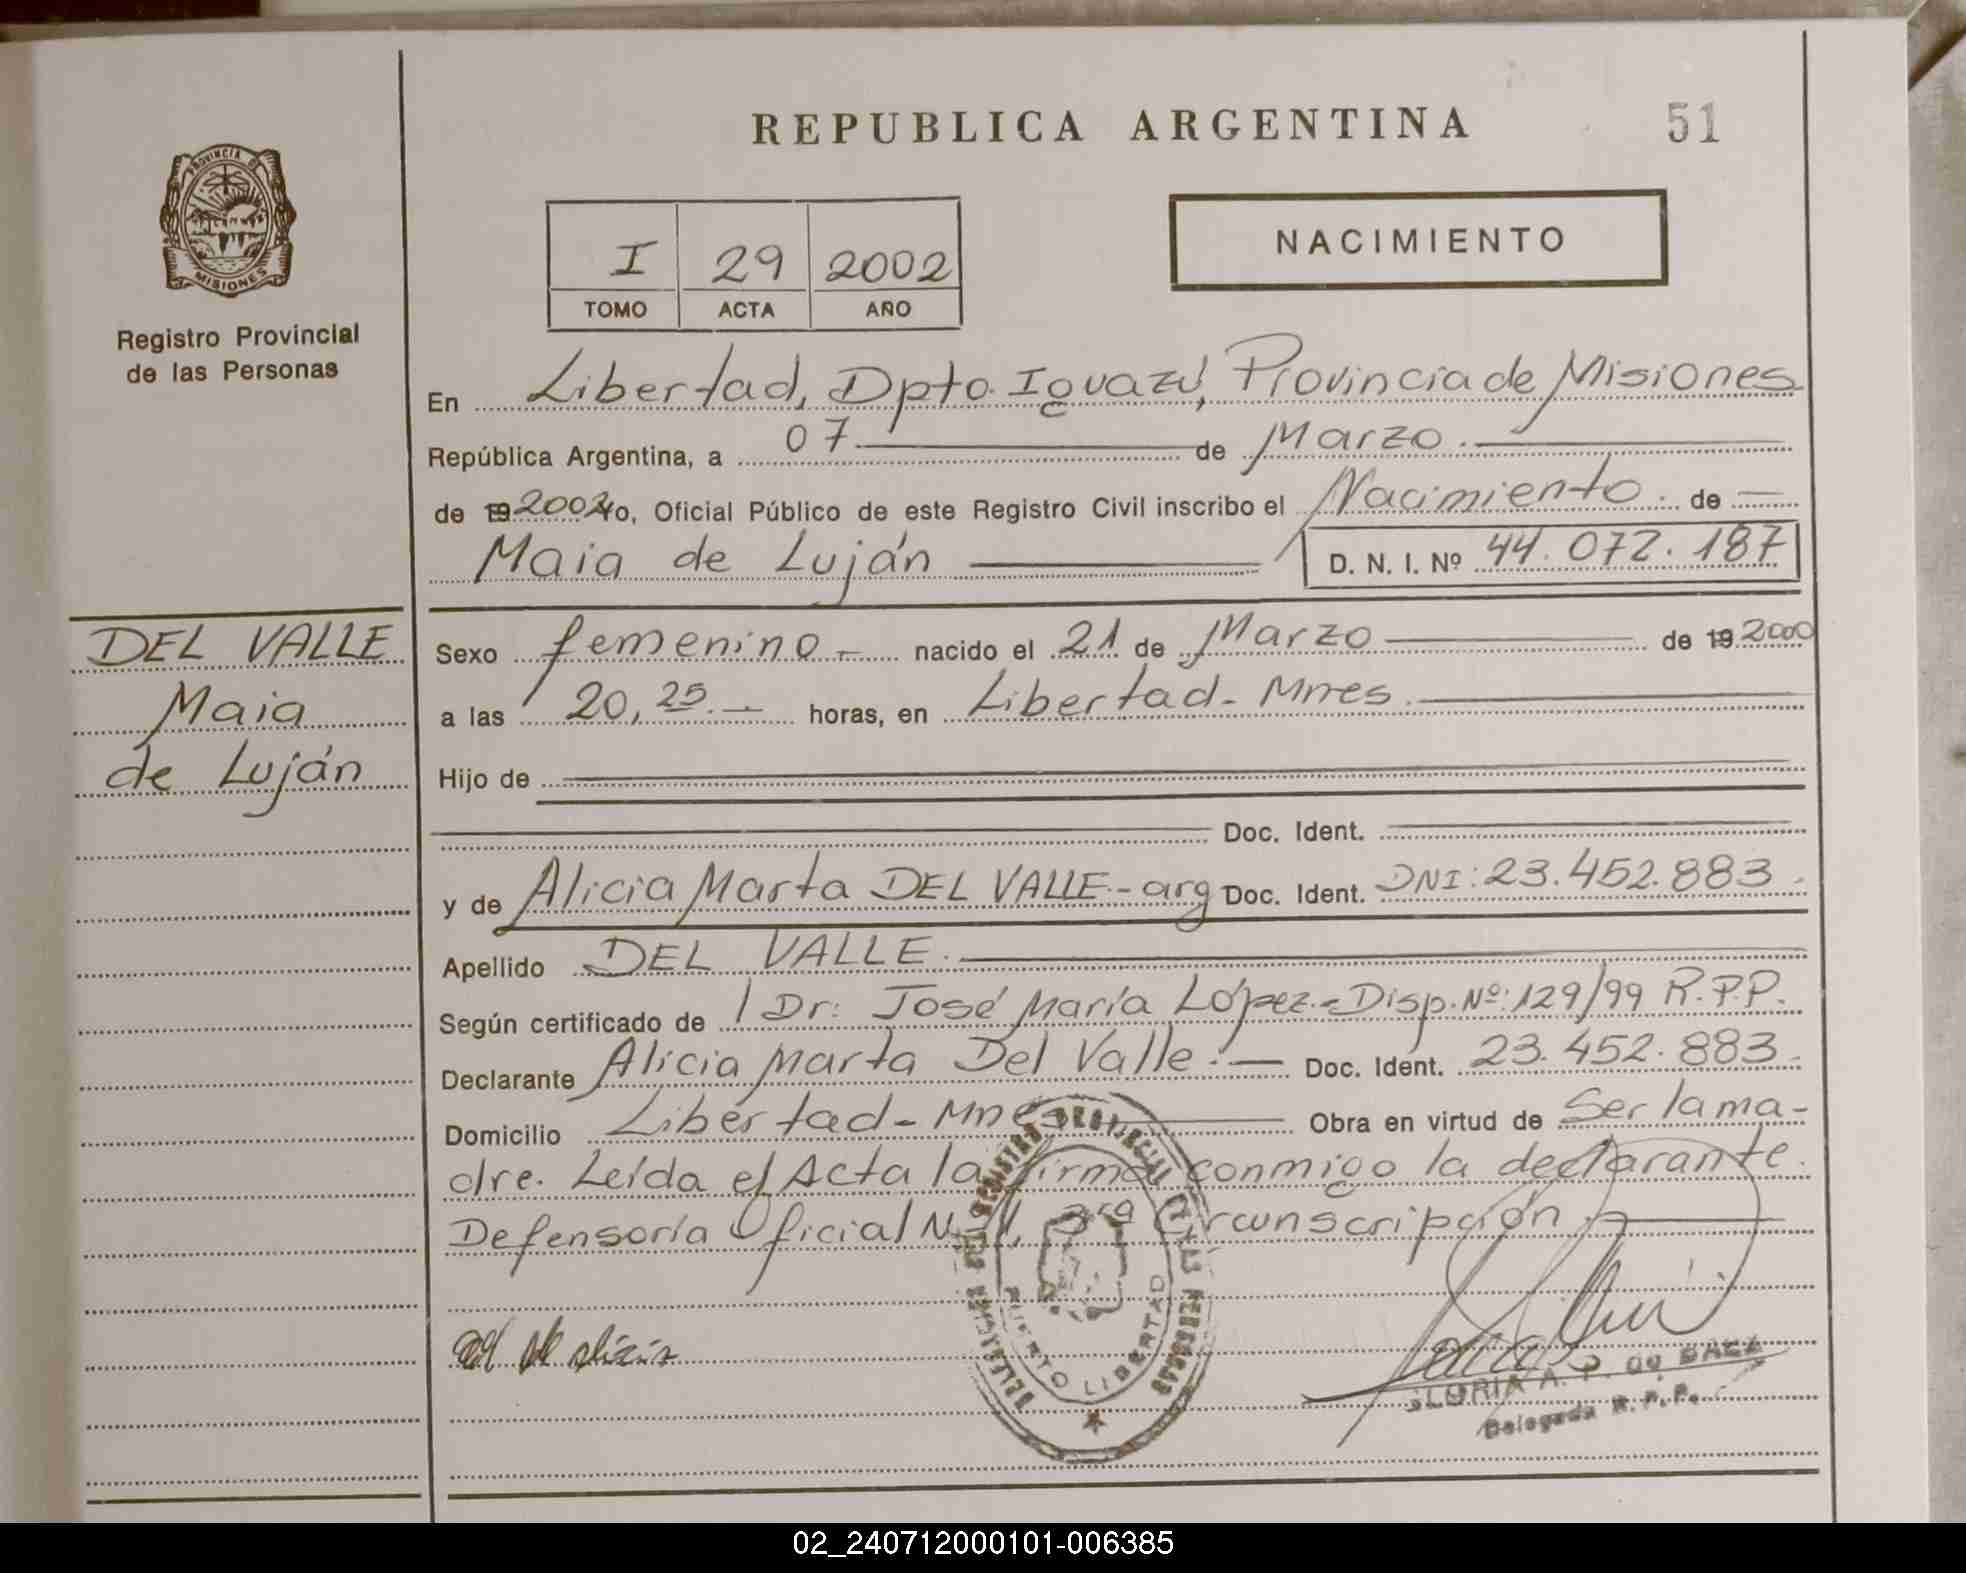 REPUBLICA ARGENTINA
51
PROVINCIA DE
MISIONES
Registro Provincial
de las Personas
I 29 2002
TOMO ACTA AÑO
NACIMIENTO
En Libertad, Dpto. Iguazú, Provincia de Misiones
República Argentina, a 07 de Marzo.
de 19 2002 Yo, Oficial Público de este Registro Civil inscribo el Nacimiento. de
Maia de Luján D. N. I. Nº 44.072.187
DEL VALLE
Maia
de Luján
Sexo femenino.- nacido el 21 de Marzo de 19 2000
a las 20,25.- horas, en Libertad - Mnes.
Hijo de
Doc. Ident.
y de Alicia Marta DEL VALLE.- arg Doc. Ident. DNI: 23.452.883.
Apellido DEL VALLE.
Según certificado de Dr: José María López.= Disp. Nº: 129/99 R.P.P.
Declarante Alicia Marta Del Valle.- Doc. Ident. 23.452.883.
Domicilio Libertad - Mnes Obra en virtud de Ser la ma-
dre. Leída el Acta la firma conmigo la declarante.
Defensoría Oficial N 1, 3ra Circunscripción.
PUERTO LIBERTAD
GLORIA A. P. de BAEZ
Delegada R.P.P.
02_240712000101-006385